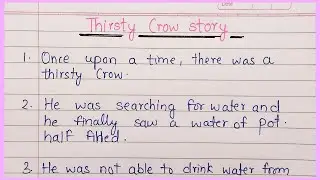 Thirsty Crow story
1. Once upon a time, there was a
thirsty Crow.
2. He was searching for water and
he finally saw a water of pot.
half filled.
3. He was not able to drink water from